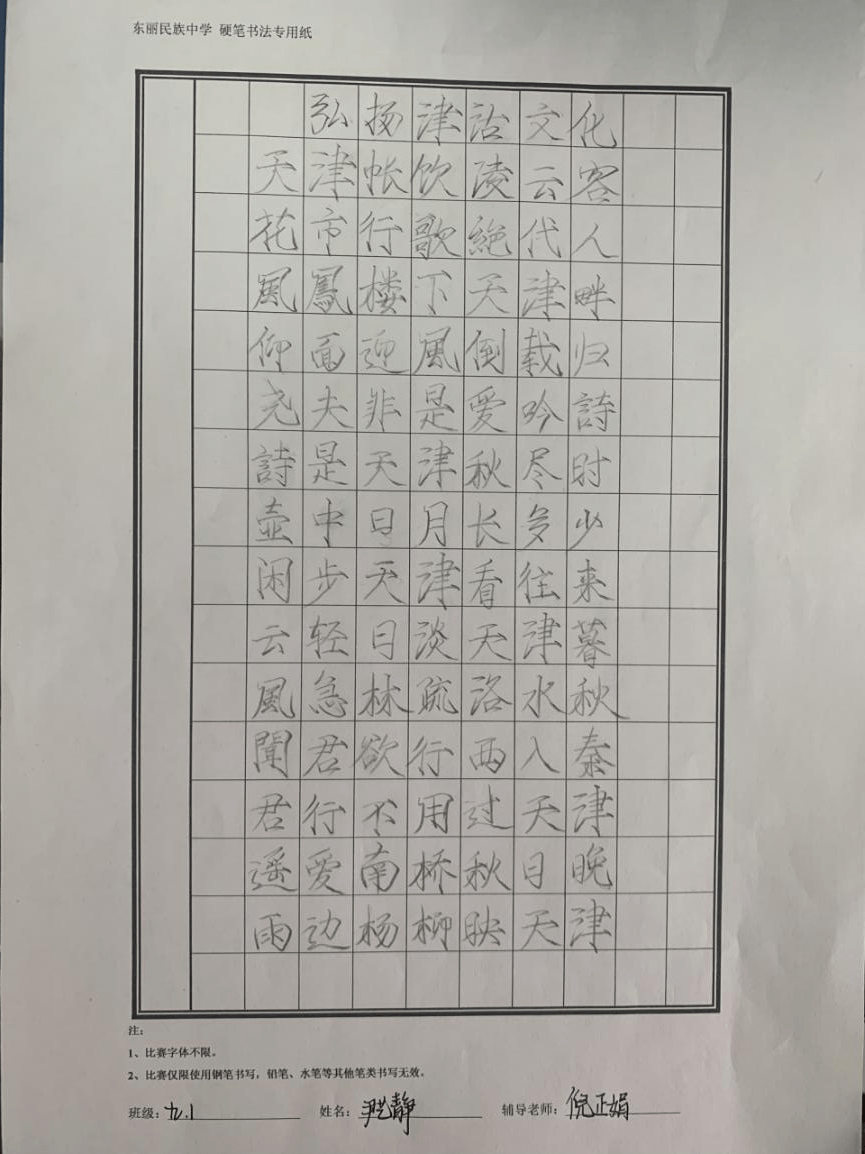 东丽民族中学 硬笔书法专用纸
弘扬津沽文化
天津帐饮凌云客
花市行歌絶代人
風鳳楼下天津畔
仰面迎風倒载归
尧夫非是爱吟詩
詩是天津秋尽时
壶中日月长多少
闲步天津看往来
云轻日淡天津暮
風急林疏洛水秋
聞君欲行西入秦
君行不用过天津
遥爱南桥秋日晚
雨边杨柳映天津
注：
1、比赛字体不限。
2、比赛仅限使用钢笔书写，铅笔、水笔等其他笔类书写无效。
班级：九.1 姓名：尹艺静 辅导老师：倪正娟